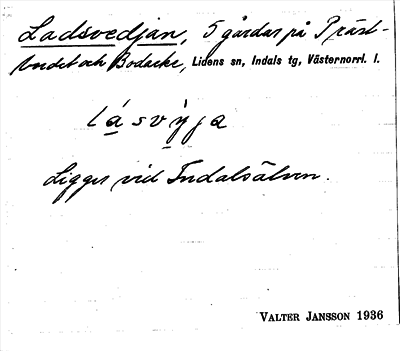 Ladsvedjan, 5 gårdar på Präst-
bordet och Bodacke, Lidens sn, Indals tg, Västernorrl. l.
lásvỳja
Ligger vid Indalsälven.
VALTER JANSSON 1936